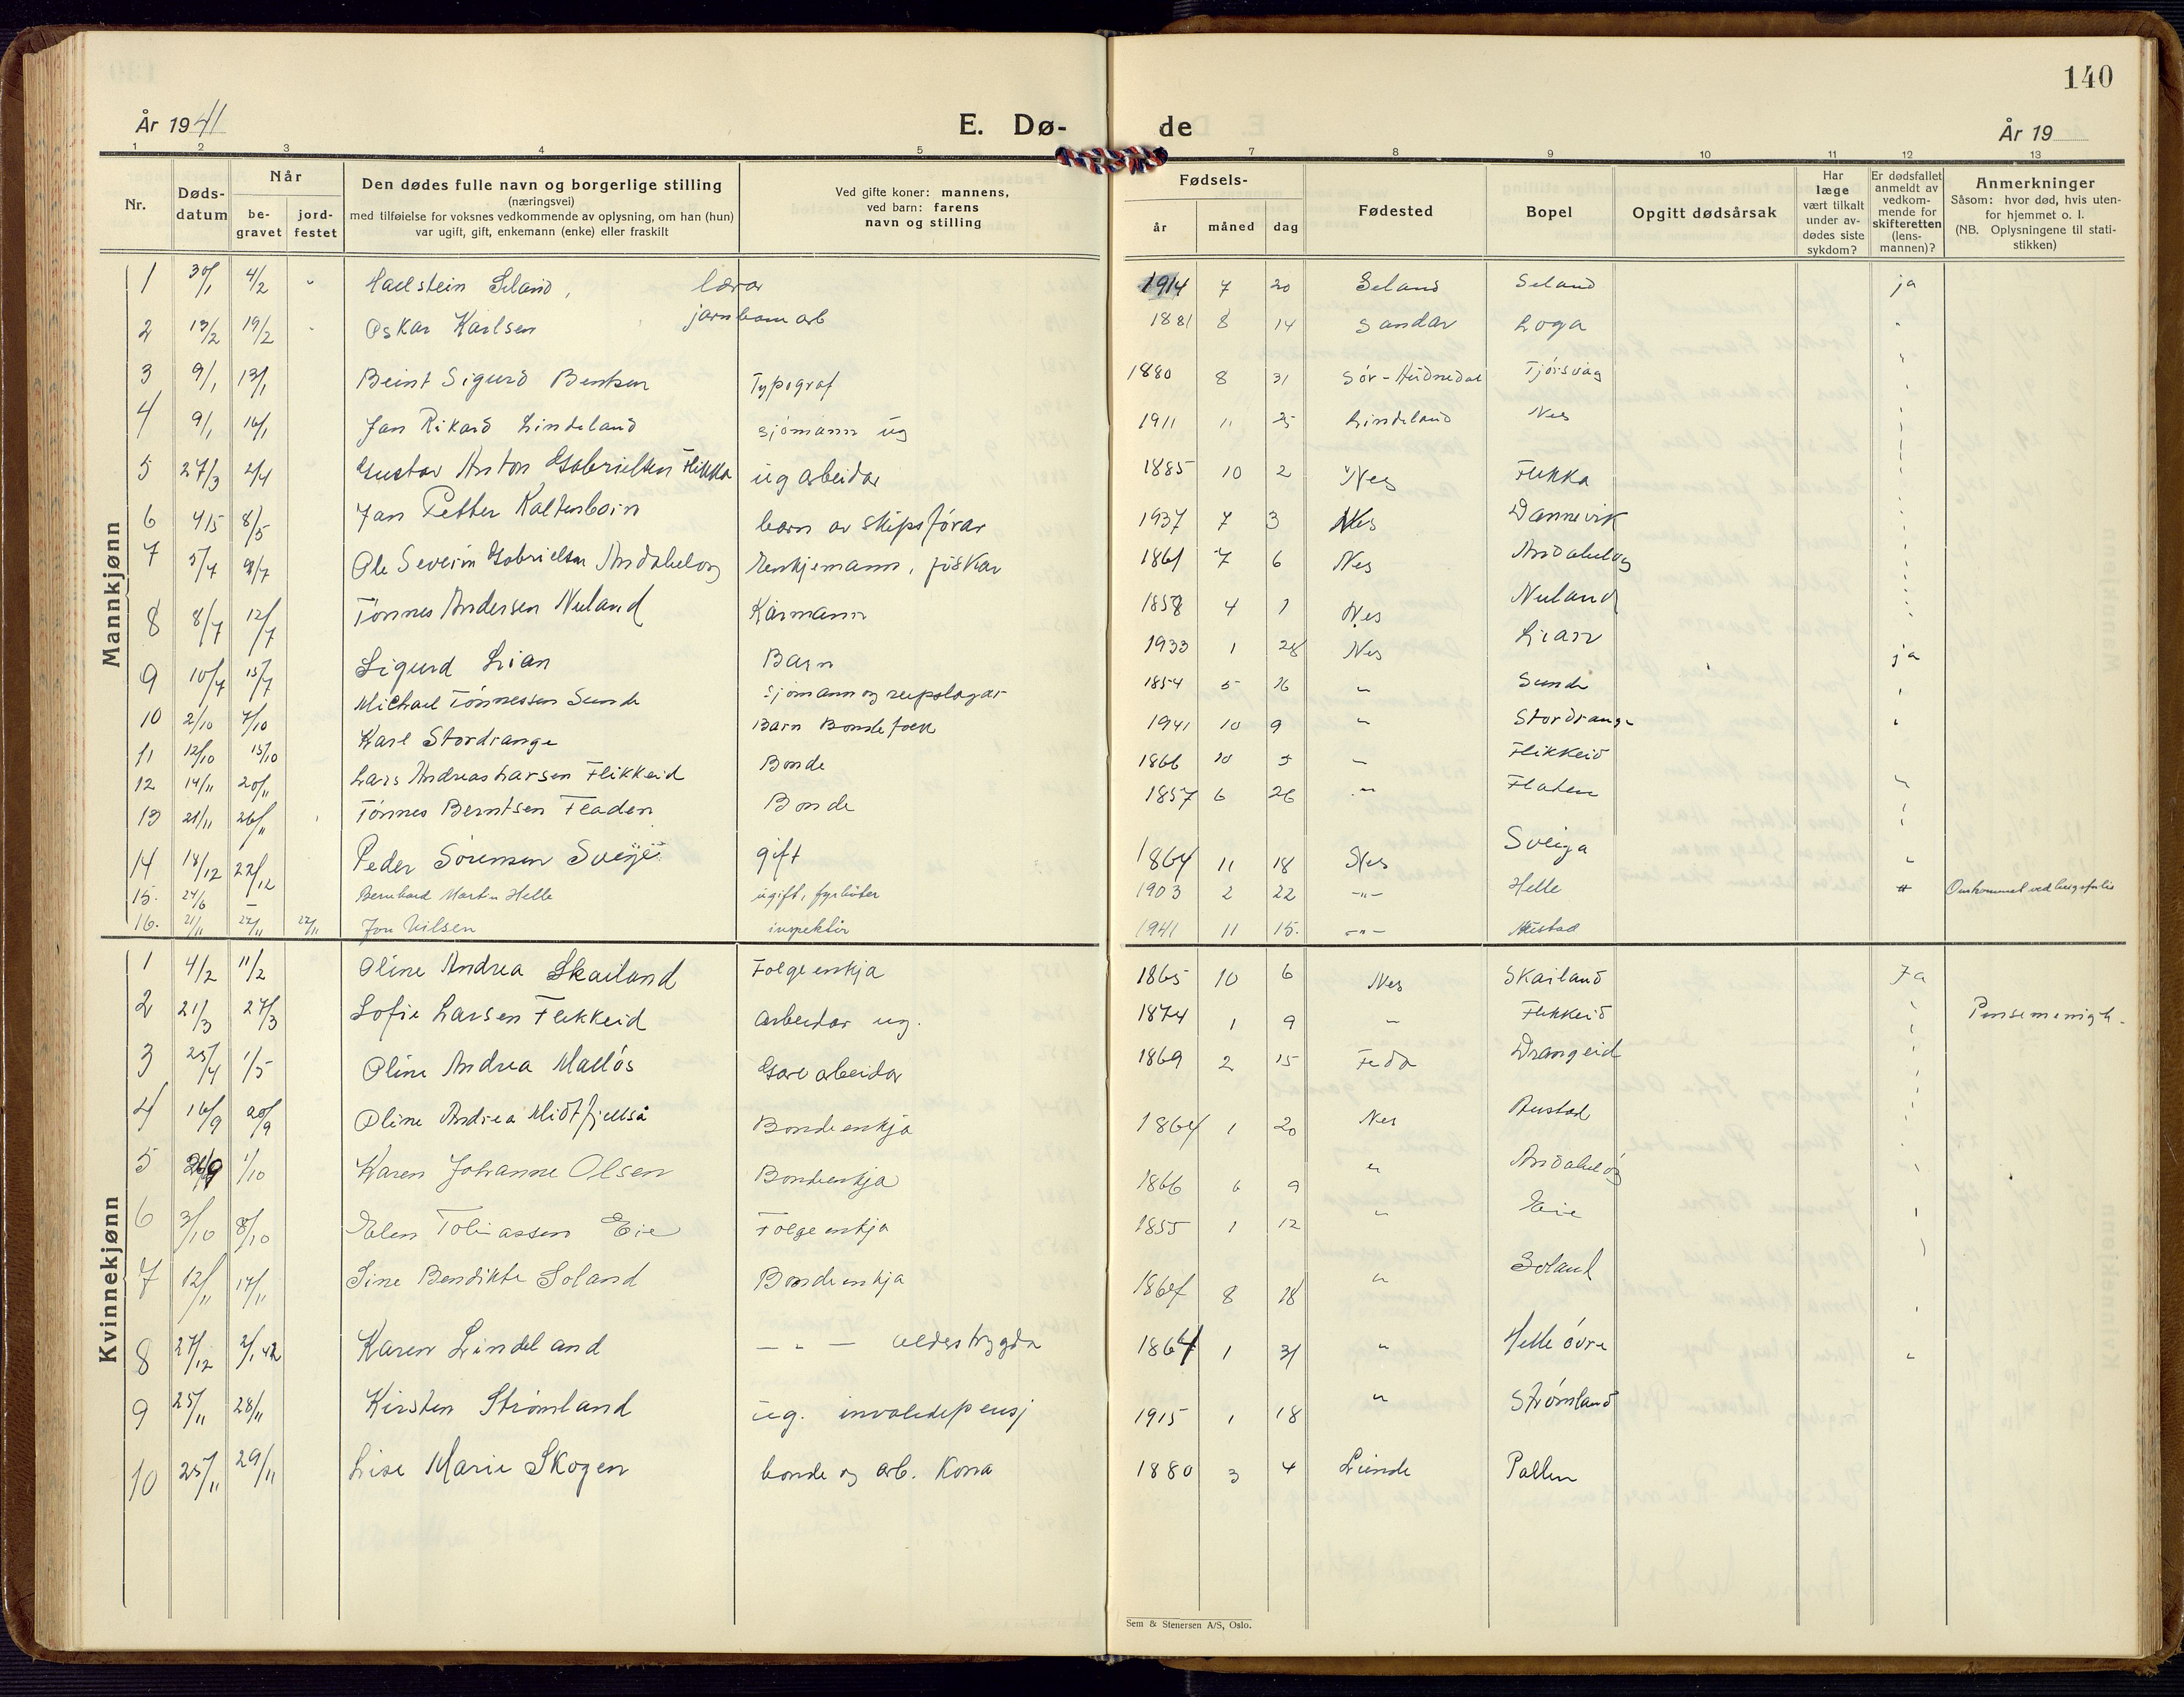 140
År 1941
E. Dø-
de
År 19
1 2 3 4 5 7 8 9 10 11 12 13
Nr.
Døds-
datum
Når
be-
gravet
jord-
festet
Den dødes fulle navn og borgerlige stilling
(næringsvei)
med tilføielse for voksnes vedkommende av oplysning, om han (hun)
var ugift, gift, enkemann (enke) eller fraskilt
Ved gifte koner: mannens,
ved barn: farens
navn og stilling
Fødsels-
år måned dag
Fødested
Bopel
Opgitt dødsårsak
Har
læge
vært tilkalt
under av-
dødes siste
sykdom?
Er dødsfallet
anmeldt av
vedkom-
mende for
skifteretten
(lens-
mannen)?
Anmerkninger
Såsom: hvor død, hvis uten-
for hjemmet o. l.
(NB. Oplysningene til stati-
stikken)
Mannkjønn
1 30/1 4/2 " Hallstein Seland, lærar 1914 7 20 Seland Seland ja
2 13/2 19/2 " Oskar Karlsen jarnbanearb 1881 8 14 Sandar Loga "
3 9/1 13/1 Beint Sigurd Bentsen Typograf 1880 8 31 Sør-Audnedal Tjørsvåg "
4 9/1 16/1 Jan Rikard Lindeland sjømann ug 1911 11 25 Lindeland Nes
5 27/3 2/4 Gustav Anton Gabrielsen Flikka ug arbeidar 1885 10 2 Nes Flikka
6 4/5 8/5 Jan Petter Kaltenborn barn av skipsførar 1937 7 3 Nes Dannevik
7 5/7 9/7 Ole Severin Gabrielsen Andabeløy Enkjemann, fiskar 1861 7 6 Nes Andabeløy
8 8/7 12/7 Tønnes Andersen Nuland Kårmann 1858 4 1 Nes Nuland
9 10/7 15/7 Sigurd Lian Barn 1933 1 28 Nes Lian ja
10 2/10 7/10 Michael Tønnessen Sunde Sjømann og reipslagar 1854 5 16 " Sunde
11 12/10 15/10 Karl Stordrange Barn Bondefolk 1941 10 9 " Stordrange
12 14/11 20/11 Lars Andreas Larsen Flikkeid Bonde 1866 10 5 " Flikkeid
13 21/11 26/11 Tønnes Berntsen Fladen Bonde 1857 6 26 " Flaten
14 18/12 22/12 Peder Sørensen gift 1864 11 18 Nes Sveiga
15. 24/6 – Bernhard Martin Helle ugift, fyrbøter 1903 2 22 -"- Helle Omkommet ved krigsforlis
16. 21/11 27/11 27/11 Jon Nilsen inspektør 1941 11 15. -"-
Kvinnekjønn
1 4/2 11/2 Oline Andrea Skailand Folgeenkja 1865 10 6 Nes Skailand Ja
2 21/3 27/3 Sofie Larsen Flikkeid arbeidar ug. 1874 1 9 " Flikkeid Pinsemenigh.
3 25/4 1/5 Oline Andrea Malløs Gardarbeidar 1869 2 15 Feda Drangeid
4 16/9 20/9 Oline Andrea Midtfjellså Bondeenkja 1864 1 20 Nes Austad
5 26/9 1/10 Karen Johanne Olsen Bondeenkja 1866 6 9 " Andabeløy
6 3/10 8/10 Elen Tobiassen Eie Folgeenkja 1855 1 12 " Eie
7 12/11 17/11 Sine Bendikte Soland Bondeenkja 1867 8 18 " Soland
8 27/12 2/1 42 Karen Lindeland – " – alderstrygda 1864 1 31 " Helle øvre
9 25/11 28/11 Kirsten Strømland ug. invalidepensj 1915 1 18 " Strømland
10 25/11 29/11 Lise Marie Skogen bonde og arb. Kona 1880 3 4 Lunde Pallen
Sem & Stenersen A/S, Oslo.